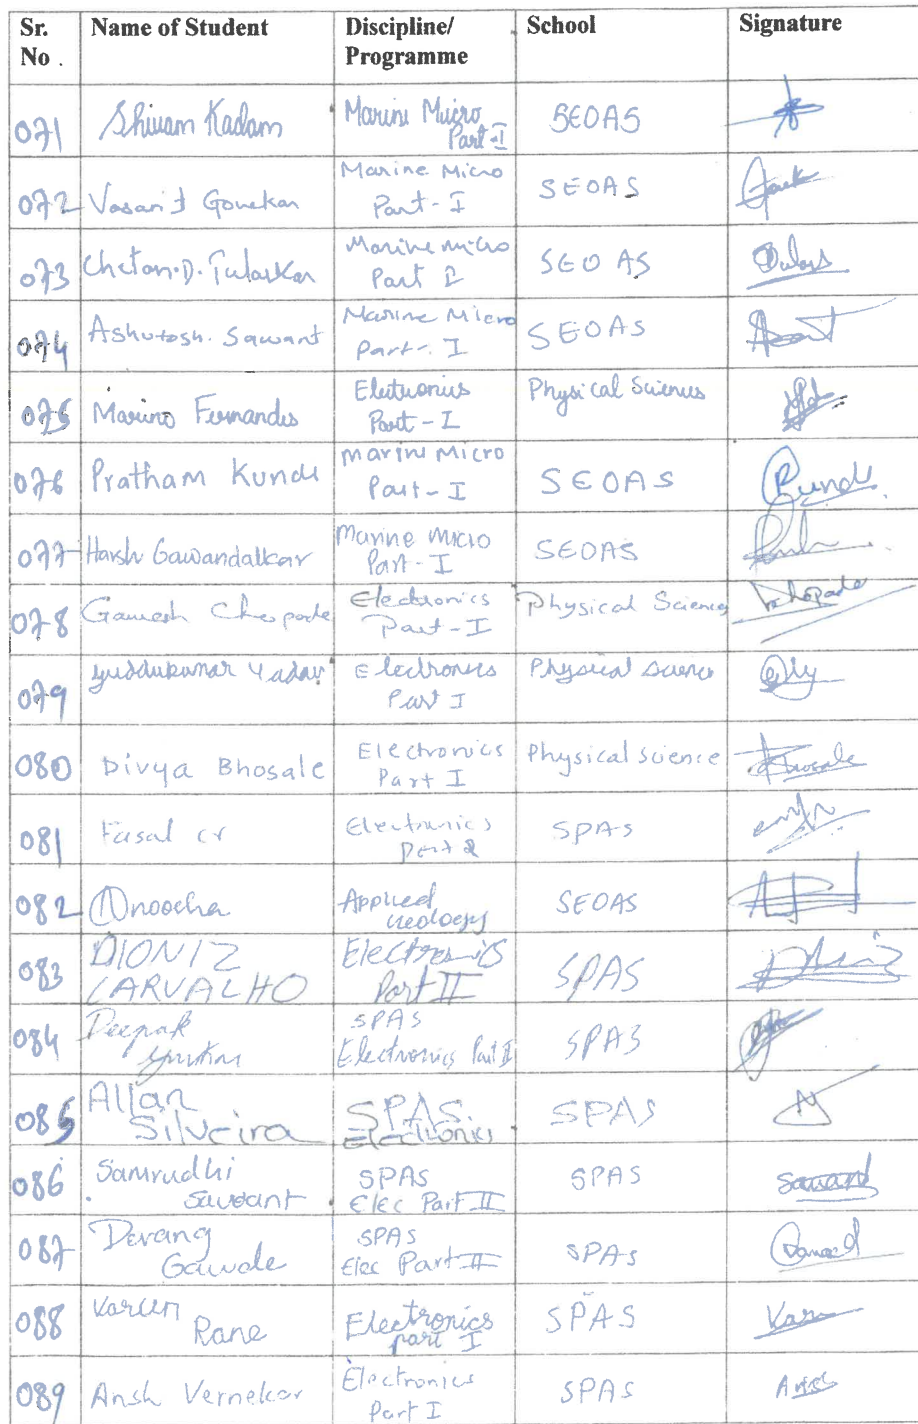 Sr. No . Name of Student Discipline/ Programme School Signature
071 Shivam Kadam Marine Micro Part-I SEOAS
072 Vasant Gonekar Marine Micro Part-I SEOAS
073 Chetan.D. Tularkar Marine micro Part I SEOAS
074 Ashutosh. Sawant Marine Micro Part-I SEOAS
075 Marino Fernandes Electronics Part-I Physical Sciences
076 Pratham Kunde marine Micro Part-I SEOAS Kunde
077 Harsh Gawandalkar Marine Micro Part-I SEOAS
078 Ganesh Chopade Electronics Part-I Physical Science
079 yuddukumar Yadav Electronics Part I Physical science
080 Divya Bhosale Electronics Part I Physical science Bhosale
081 Faisal cv Electronics Part 2 SPAS
082 Anoocha Applied Geology SEOAS
083 DIONIZ CARVALHO Electronics Part II SPAS
084 Deepak SPAS Electronics Part II SPAS
085 Allan Silveira SPAS. Electronics SPAS
086 Samrudhi Sawant SPAS Elec Part II SPAS Sawant
087 Devang Gawade SPAS Elec Part II SPAS
088 Varun Rane Electronics part I SPAS
089 Ansh Vernekar Electronics Part I SPAS Ansh